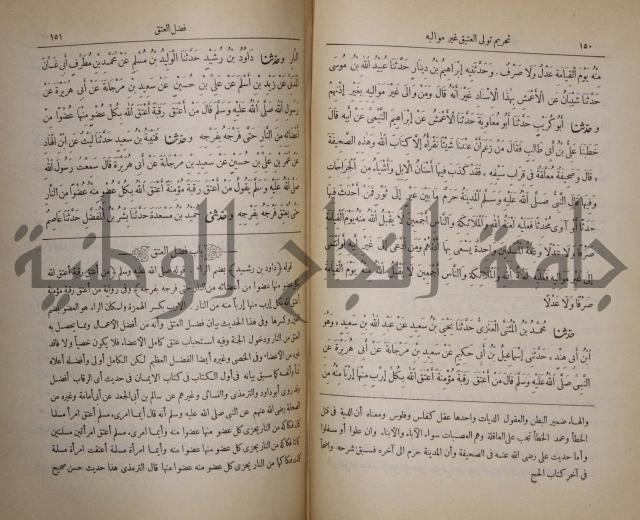 ١٥٠ تحريم تولى العتيق غير مواليه
مِنْهُ يَوْمَ الْقِيَامَةِ عَدْلٌ وَلَا صَرْفٌ. وَحَدَّثَنِيهِ إِبْرَاهِيمُ بْنُ دِينَارٍ حَدَّثَنَا عُبَيْدُ اللهِ بْنُ مُوسَى
حَدَّثَنَا شَيْبَانُ عَنِ الْأَعْمَشِ بِهَذَا الْإِسْنَادِ غَيْرَ أَنَّهُ قَالَ وَمَنْ وَالَى غَيْرَ مَوَالِيهِ بِغَيْرِ إِذْنِهِمْ
و حَدَّثَنَا أَبُو كُرَيْبٍ حَدَّثَنَا أَبُو مُعَاوِيَةَ حَدَّثَنَا الْأَعْمَشُ عَنْ إِبْرَاهِيمَ التَّيْمِيِّ عَنْ أَبِيهِ قَالَ
خَطَبَنَا عَلِيُّ بْنُ أَبِي طَالِبٍ فَقَالَ مَنْ زَعَمَ أَنَّ عِنْدَنَا شَيْئًا نَقْرَأُهُ إِلَّا كِتَابَ اللهِ وَهَذِهِ الصَّحِيفَةَ
«قَالَ وَصَحِيفَةٌ مُعَلَّقَةٌ فِي قِرَابِ سَيْفِهِ» فَقَدْ كَذَبَ فِيهَا أَسْنَانُ الْإِبِلِ وَأَشْيَاءُ مِنَ الْجِرَاحَاتِ
وَفِيهَا قَالَ النَّبِيُّ صَلَّى اللهُ عَلَيْهِ وَسَلَّمَ الْمَدِينَةُ حَرَمٌ مَا بَيْنَ عَيْرٍ إِلَى ثَوْرٍ فَمَنْ أَحْدَثَ فِيهَا
حَدَثًا أَوْ آوَى مُحْدِثًا فَعَلَيْهِ لَعْنَةُ اللهِ وَالْمَلَائِكَةِ وَالنَّاسِ أَجْمَعِينَ لَا يَقْبَلُ اللهُ مِنْهُ يَوْمَ الْقِيَامَةِ
صَرْفًا وَلَا عَدْلًا وَذِمَّةُ الْمُسْلِمِينَ وَاحِدَةٌ يَسْعَى بِهَا أَدْنَاهُمْ وَمَنِ ادَّعَى إِلَى غَيْرِ أَبِيهِ أَوِ انْتَمَى
إِلَى غَيْرِ مَوَالِيهِ فَعَلَيْهِ لَعْنَةُ اللهِ وَالْمَلَائِكَةِ وَالنَّاسِ أَجْمَعِينَ لَا يَقْبَلُ اللهُ مِنْهُ يَوْمَ الْقِيَامَةِ
صَرْفًا وَلَا عَدْلًا
حَدَّثَنَا مُحَمَّدُ بْنُ الْمُثَنَّى الْعَنَزِيُّ حَدَّثَنَا يَحْيَى بْنُ سَعِيدٍ عَنْ عَبْدِ اللهِ بْنِ سَعِيدٍ «وَهُوَ
ابْنُ أَبِي هِنْدٍ» حَدَّثَنِي إِسْمَاعِيلُ بْنُ أَبِي حَكِيمٍ عَنْ سَعِيدِ بْنِ مَرْجَانَةَ عَنْ أَبِي هُرَيْرَةَ عَنِ
النَّبِيِّ صَلَّى اللهُ عَلَيْهِ وَسَلَّمَ قَالَ مَنْ أَعْتَقَ رَقَبَةً مُؤْمِنَةً أَعْتَقَ اللهُ بِكُلِّ إِرْبٍ مِنْهَا إِرْبًا مِنْهُ مِنَ
والهاء ضمير البطن والعقول الديات واحدها عقل كفلس وفلوس ومعناه أن الدية في قتل
الخطأ وعمد الخطأ تجب على العاقلة وهم العصبات سواء الآباء والأبناء وان علوا أو سفلوا
وأما حديث على رضى الله عنه في الصحيفة وأن المدينة حرم الى آخره فسبق شرحه واضحا
في آخر كتاب الحج
فضل العتق ١٥١
النَّارِ و حَدَّثَنَا دَاوُدُ بْنُ رُشَيْدٍ حَدَّثَنَا الْوَلِيدُ بْنُ مُسْلِمٍ عَنْ مُحَمَّدِ بْنِ مُطَرِّفٍ أَبِي غَسَّانَ
الْمَدَنِيِّ عَنْ زَيْدِ بْنِ أَسْلَمَ عَنْ عَلِيِّ بْنِ حُسَيْنٍ عَنْ سَعِيدِ بْنِ مَرْجَانَةَ عَنْ أَبِي هُرَيْرَةَ عَنْ
رَسُولِ اللهِ صَلَّى اللهُ عَلَيْهِ وَسَلَّمَ قَالَ مَنْ أَعْتَقَ رَقَبَةً أَعْتَقَ اللهُ بِكُلِّ عُضْوٍ مِنْهَا عُضْوًا مِنْ
أَعْضَائِهِ مِنَ النَّارِ حَتَّى فَرْجَهُ بِفَرْجِهِ و حَدَّثَنَا قُتَيْبَةُ بْنُ سَعِيدٍ حَدَّثَنَا لَيْثٌ عَنِ ابْنِ الْهَادِ
عَنْ عُمَرَ بْنِ عَلِيِّ بْنِ حُسَيْنٍ عَنْ سَعِيدِ بْنِ مَرْجَانَةَ عَنْ أَبِي هُرَيْرَةَ قَالَ سَمِعْتُ رَسُولَ اللهِ
صَلَّى اللهُ عَلَيْهِ وَسَلَّمَ يَقُولُ مَنْ أَعْتَقَ رَقَبَةً مُؤْمِنَةً أَعْتَقَ اللهُ بِكُلِّ عُضْوٍ مِنْهُ عُضْوًا مِنَ النَّارِ
حَتَّى يُعْتِقَ فَرْجَهُ بِفَرْجِهِ و حَدَّثَنِي حُمَيْدُ بْنُ مَسْعَدَةَ حَدَّثَنَا بِشْرُ بْنُ الْمُفَضَّلِ حَدَّثَنَا عَاصِمُ
باب فضل العتق
قوله ﴿داود بن رشيد﴾ بضم الراء. قوله صلى الله عليه وسلم ﴿من أعتق رقبة أعتق الله
بكل عضو منها عضوا من أعضائه من النار حتى فرجه بفرجه﴾ وفى رواية من أعتق رقبة مؤمنة
أعتق الله بكل إرب منها إرباً منه من النار. الارب بكسر الهمزة واسكان الراء هو العضو بضم
العين وكسرها وفى هذا الحديث بيان فضل العتق وأنه من أفضل الأعمال ومما يحصل به
العتق من النار ودخول الجنة وفيه استحباب عتق كامل الأعضاء فلا يكون خصياً ولا فاقد
غيره من الأعضاء وفى الخصى وغيره أيضا الفضل العظيم لكن الكامل أولى وأفضله أعلاه
ثمناً وأنفسه كما سبق بيانه فى أول الكتاب فى كتاب الايمان فى حديث أى الرقاب أفضل
وقد روى أبو داود والترمذى والنسائى وغيرهم عن سالم بن أبى الجعد عن أبى أمامة وغيره من
الصحابة رضى الله عنهم عن النبى صلى الله عليه وسلم أنه قال أيما امرىء مسلم أعتق امرأ مسلما
كان فكاكه من النار يجزى كل عضو منه عضوا منه وأيما امرىء مسلم أعتق امرأتين مسلمتين
كانتا فكاكه من النار يجزى كل عضو منهما عضوا منه وأيما امرأة مسلمة أعتقت امرأة مسلمة
كانت فكاكها من النار يجزى كل عضو منها عضوا منها قال الترمذى هذا حديث حسن صحيح
جامعة النجاح الوطنية